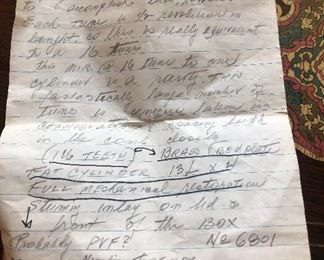 to accomplish this,
Each tune is 1/2 revolution in
length, so this is really equivalent
to a 16 tunes
this M.B. @ 16 tunes to one
cylinder is a party. This
fantastically large number of
tunes is unique taken in
consideration spacing
in the comb closely
(116 TEETH) → BRASS BED plate
FAT CYLINDER 13 1/2 x 4
FULL MECHANICAL restoration
Stunning inlay on lid &
front of the BOX
Probably PVF? No 6801